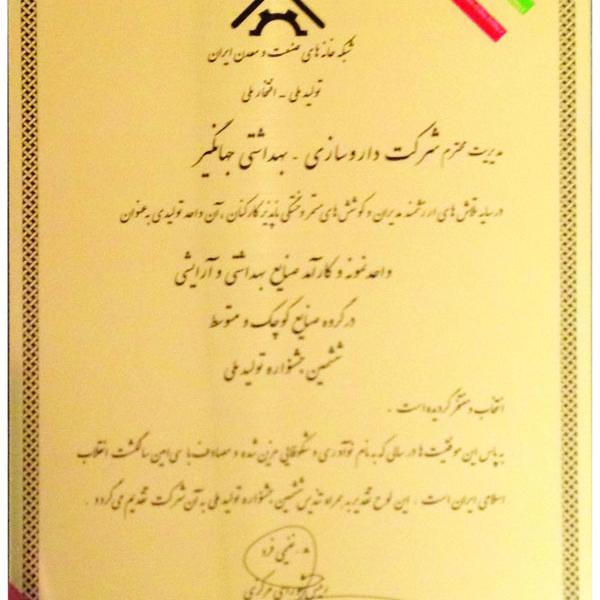 شبکه خانه های صنعت و معدن ایران
تولید ملی - افتخار ملی
مدیریت محترم شرکت داروسازی - بهداشتی جهانگیر
در سایه تلاش های ارزشمند مدیران و کوشش های مستمر و خستگی ناپذیر کارکنان، آن واحد تولیدی به عنوان
واحد نمونه و کارآمد صنایع بهداشتی و آرایشی
در گروه صنایع کوچک و متوسط
ششمین جشنواره تولید ملی
انتخاب و مفتخر گردیده است .
به پاس این موفقیت ها در سالی که به نام نوآوری و شکوفایی مزین شده و مصادف با سی امین سالگشت انقلاب
اسلامی ایران است ، این لوح تقدیر به همراه تندیس ششمین جشنواره تولید ملی به آن شرکت تقدیم می گردد .
نفیمی فرد
رئیس شورای مرکزی